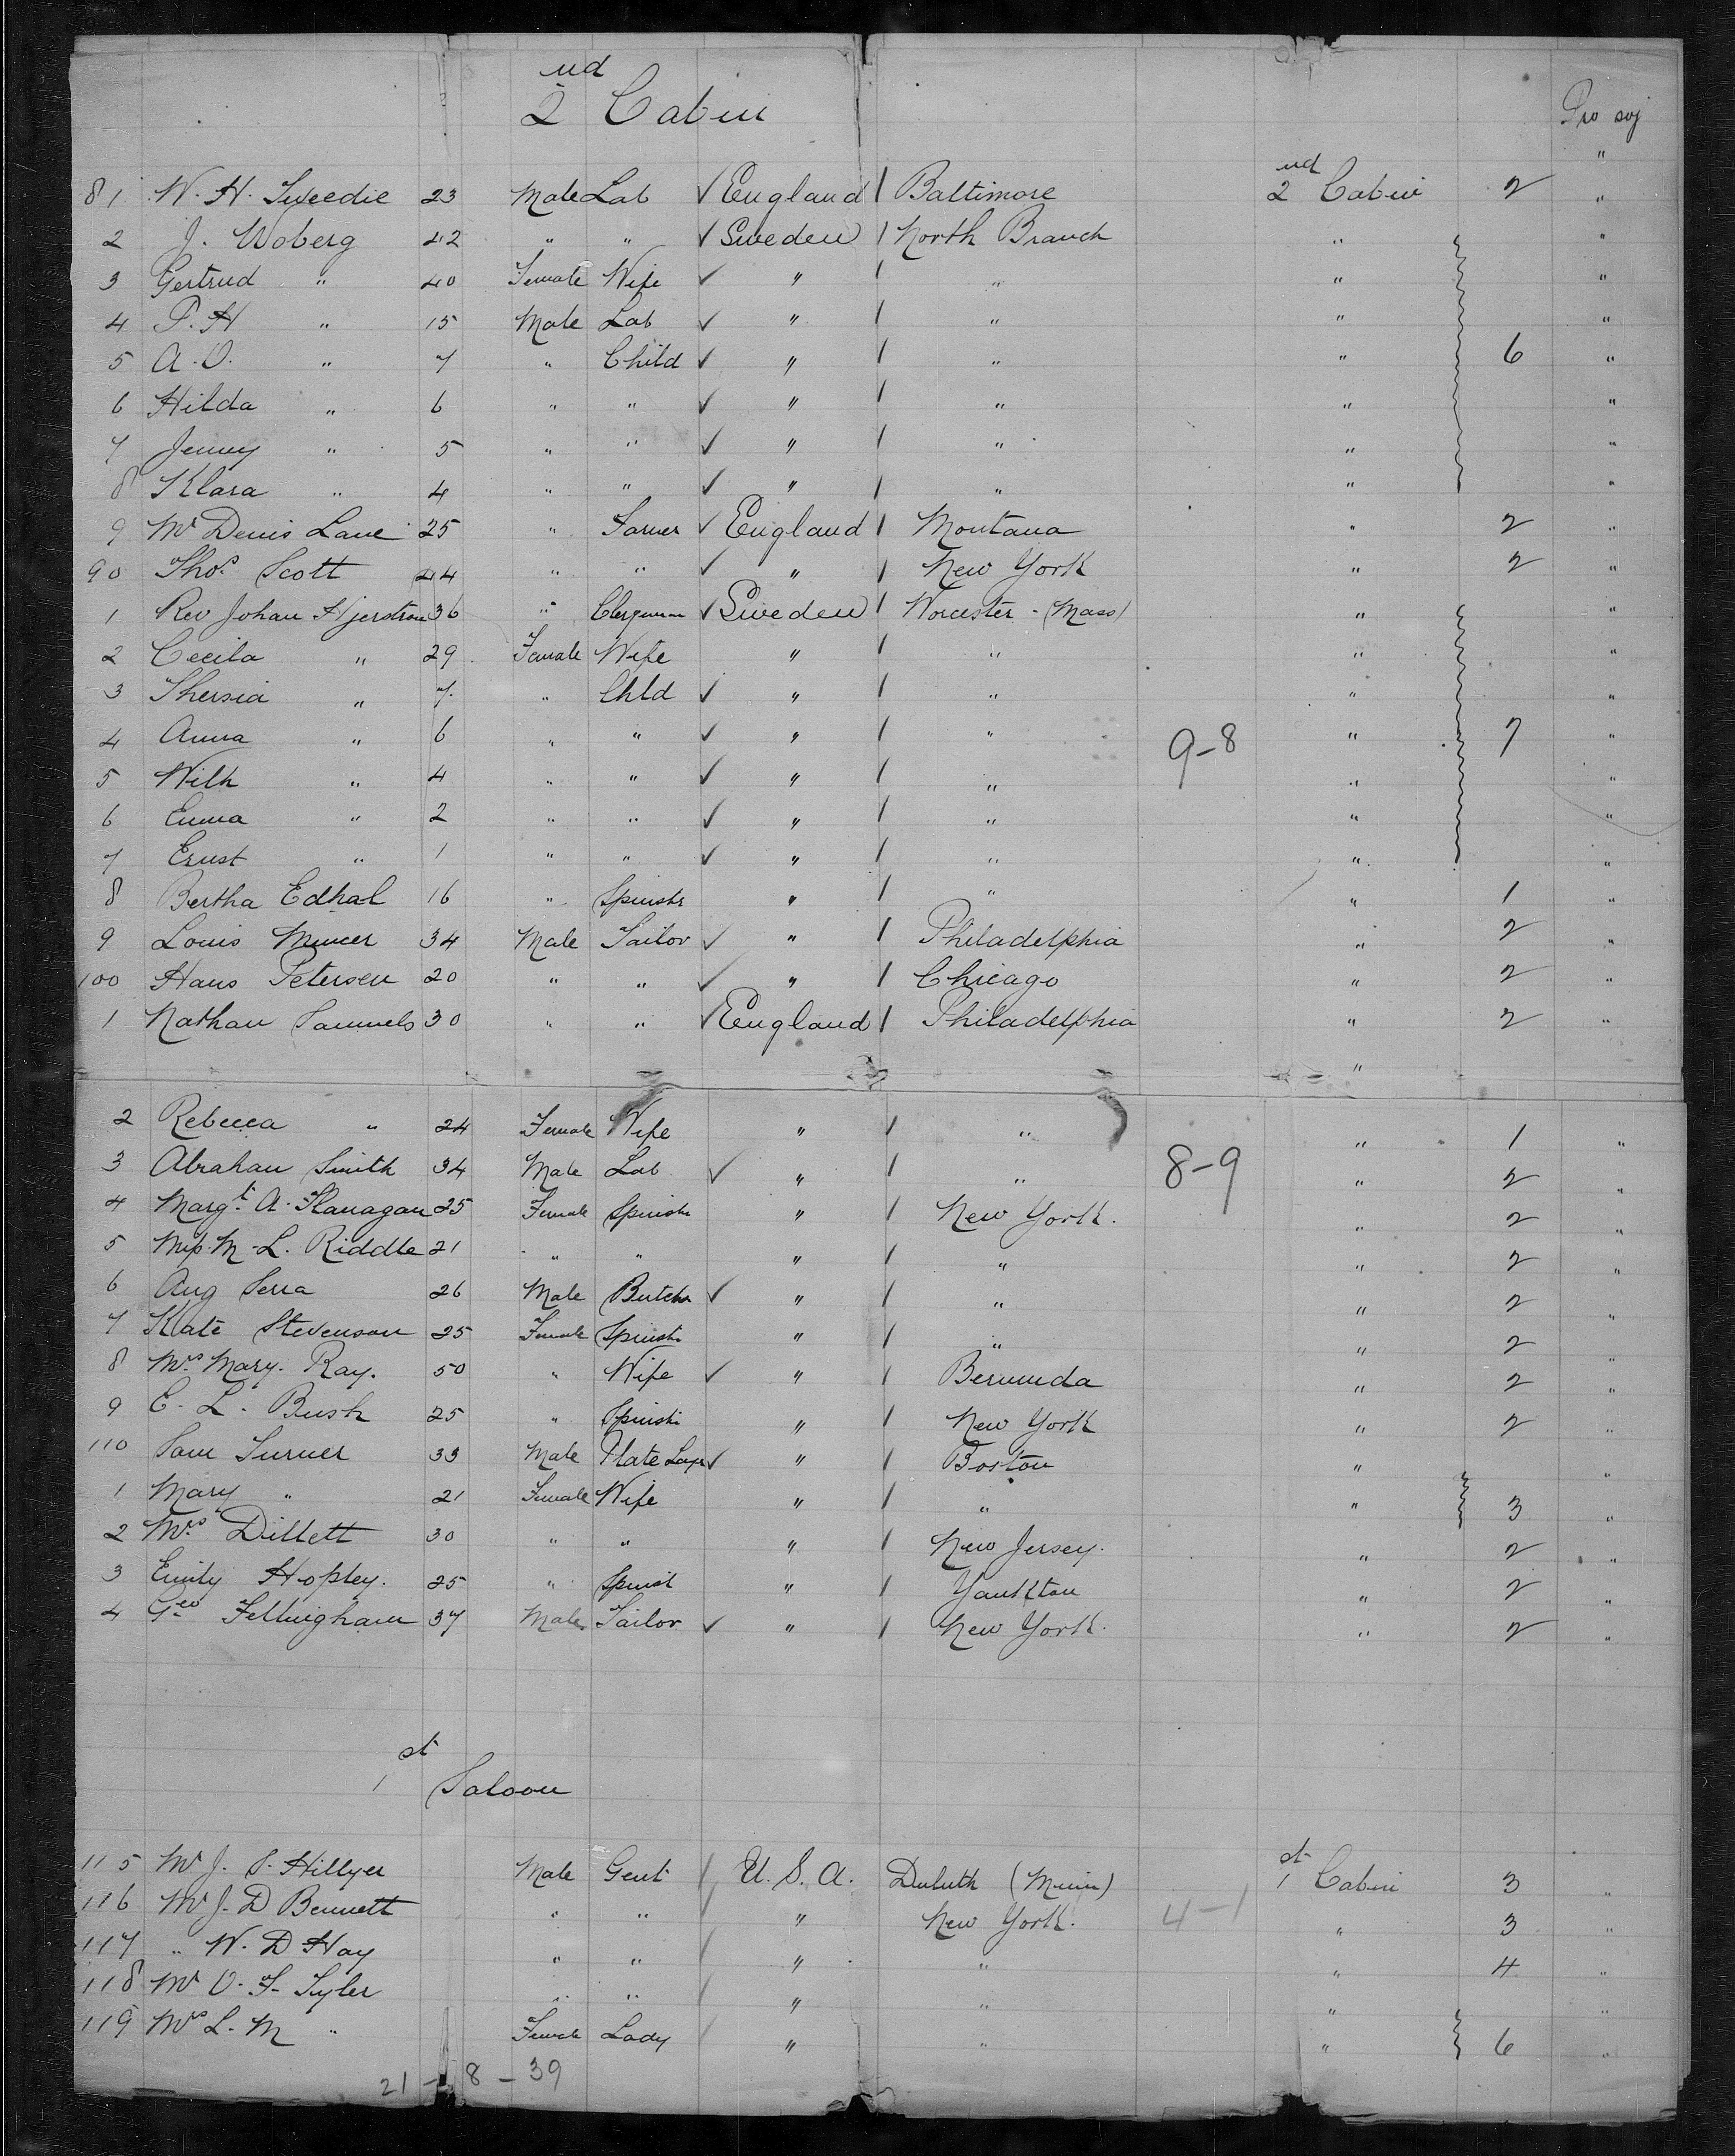 2nd Cabin
Pro soj
"
81 W. H. Tweedie 23 Male Lab ✓ England / Baltimore 2nd Cabin 2 "
2 J. Woberg 42 " " ✓ Sweden / North Branch " "
3 Gertrud " 40 Female Wife ✓ " / " " "
4 P. H " 15 Male Lab ✓ " / " " "
5 A. O. " 7 " Child ✓ " / " " 6 "
6 Hilda " 6 " " ✓ " / " " "
7 Jenny " 5 " " ✓ " / " " "
8 Klara " 4 " " ✓ " / " " "
9 Mr Denis Lane 25 " Farmer ✓ England / Montana " 2 "
90 Thos. Scott 44 " " ✓ " / New York " 2 "
1 Rev Johan Hjerstrom 36 " Clergyman ✓ Sweden / Worcester - (Mass) " "
2 Cecila " 29 Female Wife " / " " "
3 Thersia " 7 " Chld ✓ " / " " "
4 Anna " 6 " " ✓ " / " 9-8 " 7 "
5 Wilh " 4 " " ✓ " / " " "
6 Emma " 2 " " ✓ " / " " "
7 Ernst " 1 " " ✓ " / " " "
8 Bertha Edhal 16 " Spinstr " / " " 1 "
9 Louis Mincer 34 Male Tailor ✓ " / Philadelphia " 2 "
100 Hans Petersen 20 " " ✓ " / Chicago " 2 "
1 Nathan Samuels 30 " " ✓ England / Philadelphia " 2 "
"
2 Rebecca " 24 Female Wife " / " " 1 "
3 Abraham Smith 34 Male Lab ✓ " / " 8-9 " 2 "
4 Margt. A. Flanagan 25 Female Spinstr " / New York. " 2 "
5 Miss M. L. Riddle 21 " " " / " " 2 "
6 Aug Serra 26 Male Butchr ✓ " / " " 2 "
7 Kate Stevenson 25 Female Spinstr " / " " 2 "
8 Mrs Mary. Ray. 50 " Wife ✓ " / Bermuda " 2 "
9 E. L. Bush 25 " Spinstr " / New York " 2 "
110 Sam Turner 33 Male Plate Layr ✓ " / Boston " "
1 Mary " 21 Female Wife " / " " 3 "
2 Mrs. Dillett 30 " " " / New Jersey. " 2 "
3 Emily Hopley. 25 " Spinst " / Yankton " 2 "
4 Geo Fellingham 37 Male Tailor ✓ " / New York. " 2 "
1st Saloon
115 Mr J. S. Hillyer Male Gent / U. S. A. Duluth (Minn) 1st Cabin 3 "
116 Mr J. D Bennett " " / " New York. 4-1 " 3 "
117 " W. D Hay " " / " " " 4 "
118 Mr O. F. Tyler " " / " " " "
119 Mrs L. M " Female Lady / " " " 6 "
21 - 8 - 39